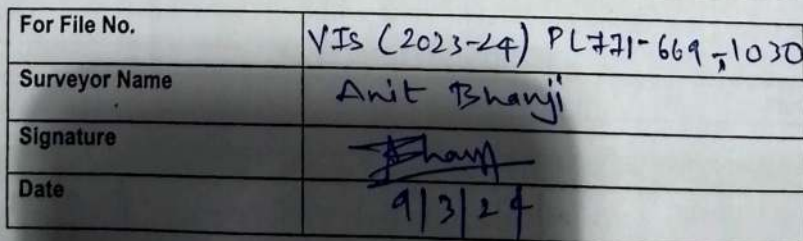 For File No. VIS (2023-24) PL771-669-1030
Surveyor Name Anit Bhanji
Signature
Date 9/3/24